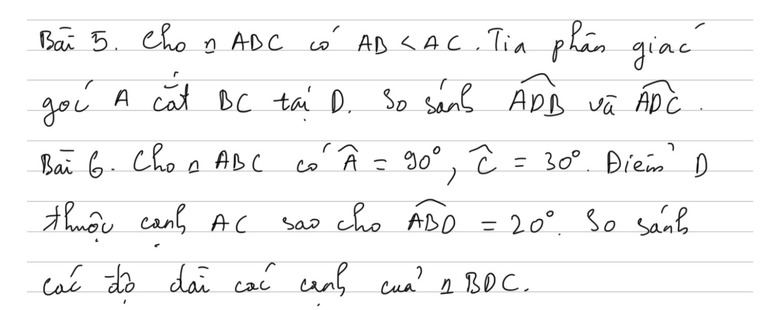 Bài 5. Cho △ ABC có AB < AC. Tia phân giác
góc A cắt BC tại D. So sánh $\widehat{ADB}$ và $\widehat{ADC}$.
Bài 6. Cho △ ABC có $\widehat{A}$ = 90°, $\widehat{C}$ = 30°. Điểm D
thuộc cạnh AC sao cho $\widehat{ABD}$ = 20°. So sánh
các độ dài các cạnh của △ BDC.